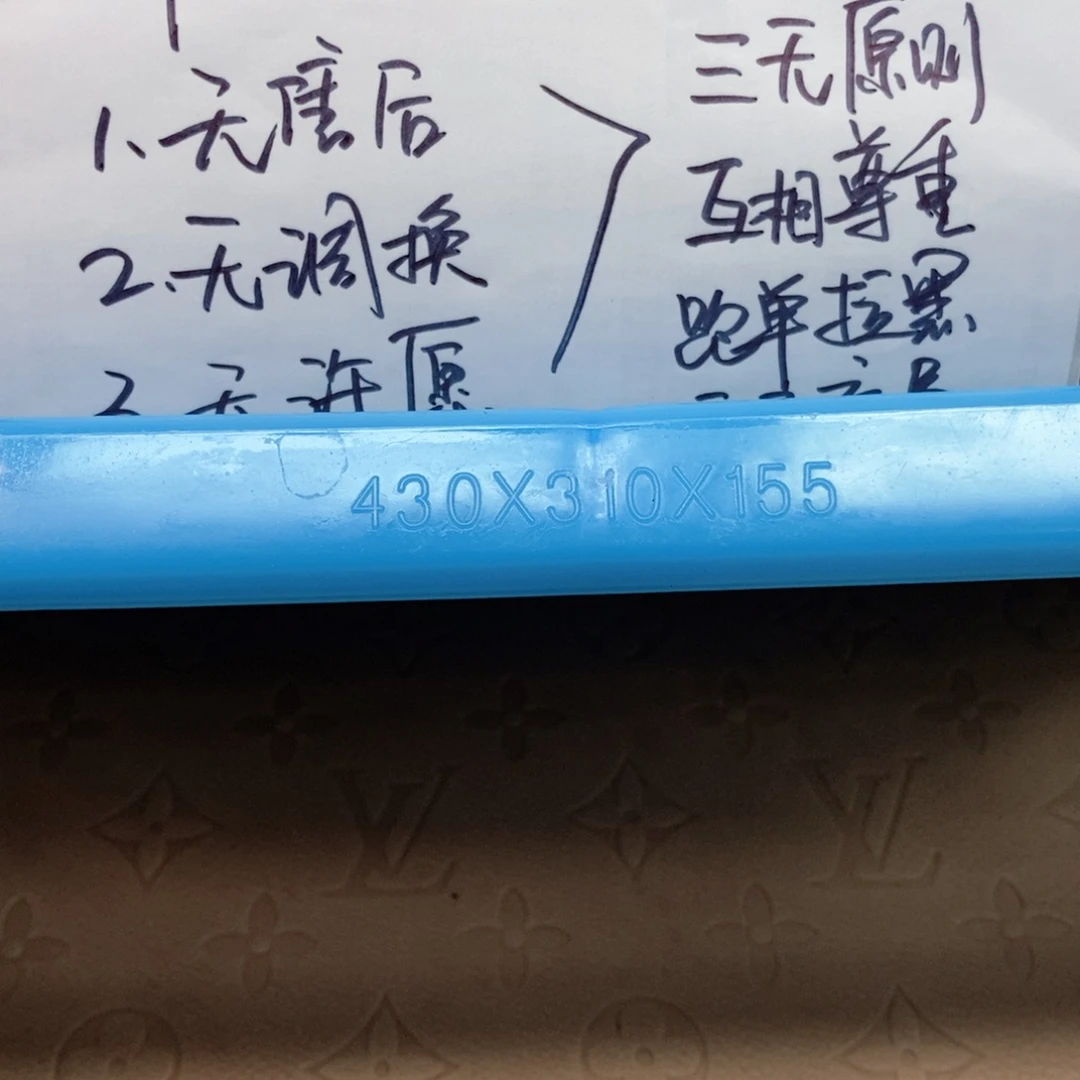 1、无售后
三无原则
2、无调换
互相尊重
3、无许愿
跑单拉黑
430X310X155
LV LV